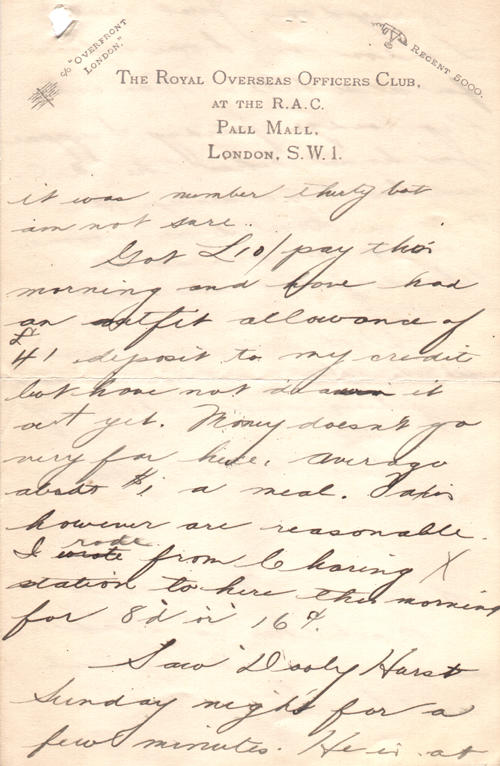 c/o "OVERFRONT
LONDON."
REGENT 5000.
THE ROYAL OVERSEAS OFFICERS CLUB,
AT THE R.A.C.
PALL MALL,
LONDON, S.W.1.
it was number thirty but
am not sure.
Got £10/ pay this
morning and have had
an outfit allowance of
£41 deposit to my credit
but have not drawn it
out yet. Money doesn't go
very far here, average
about $1 a meal. Taxis
however are reasonable.
I rode from Charing X
station to here this morning
for 8'd or 16¢.
Saw Dooly Hurst
Sunday night for a
few minutes. He is at